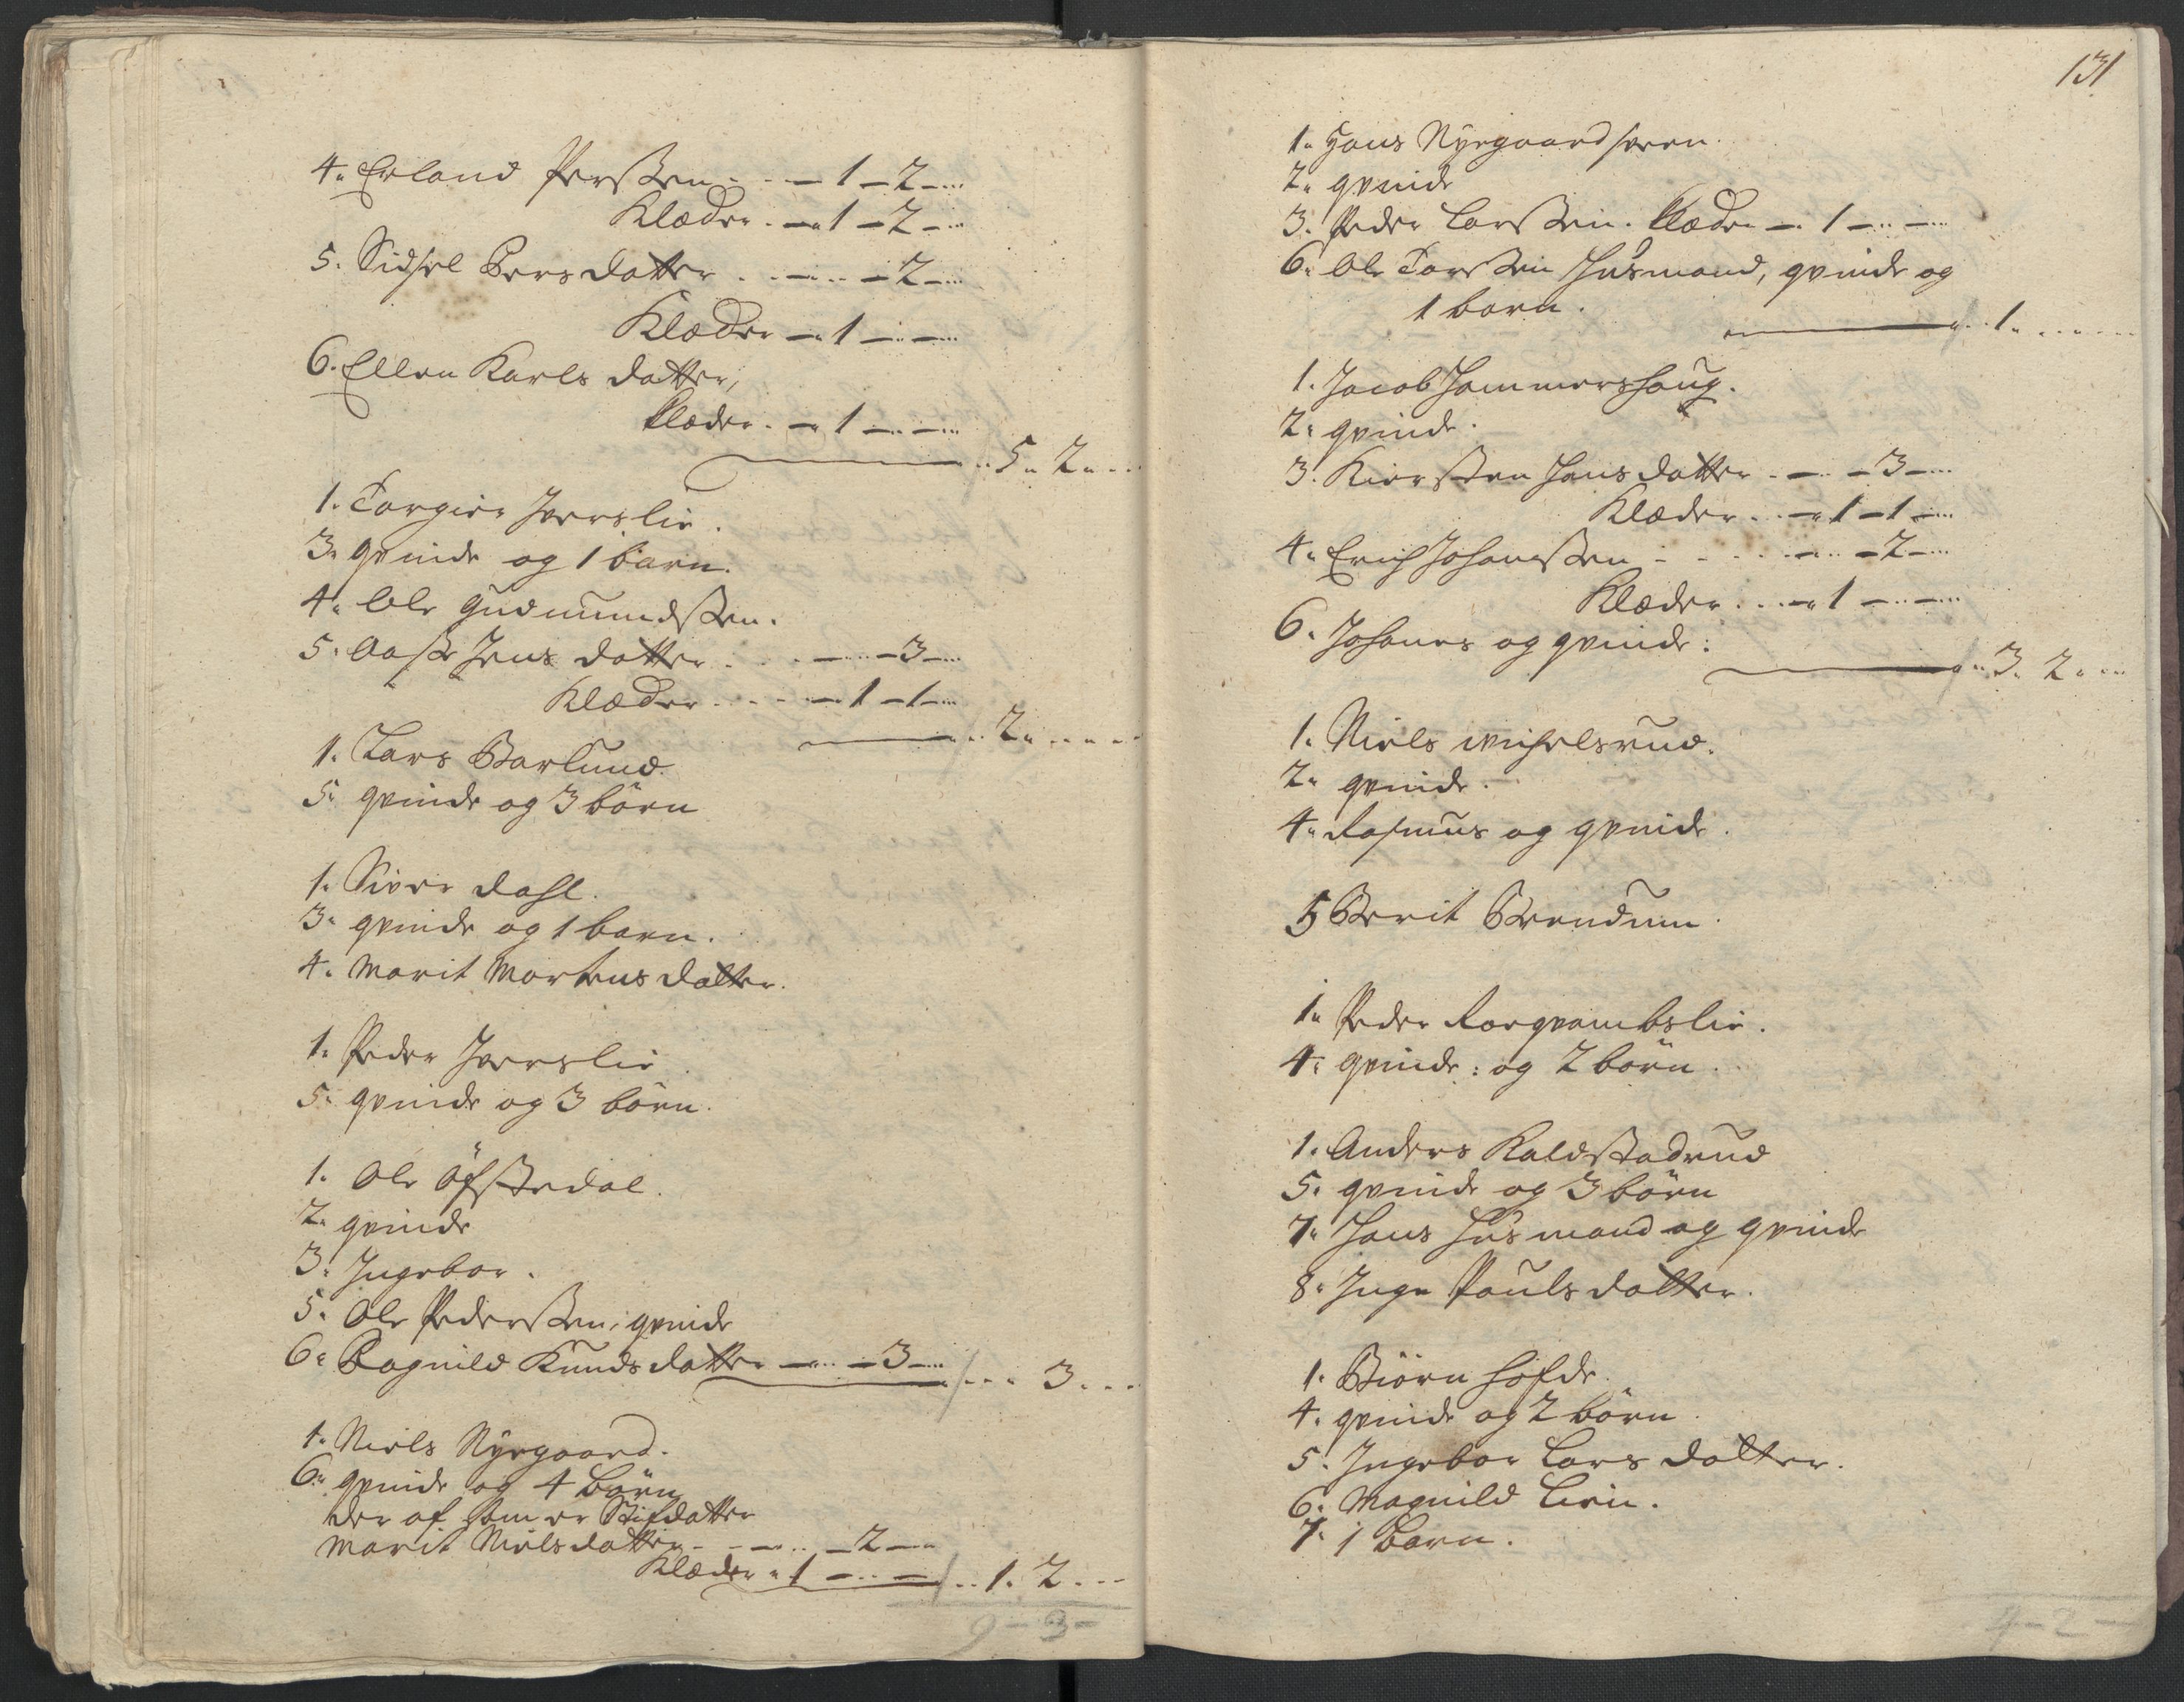 4. Erland Persszen - - - 1 - 2 - ...
Klæder . - " 1 - 2 - ...
5. Sidsel Pers datter . . - .. - 2 - ...
Klæder - " 1 - .. - ...
6. Ellen Karls datter,
Klæder . - " 1 - .. - ...
.. 5 " 2 " ...
1. Torgier Iverslie .
3. qvinde og 1 barn.
4. Ole Gudmundszen.
5. Aasse Jens datter . . . - ... - 3 - ...
Klæder . . - - " 1 - 1 - ...
" .. 2 " . . . .
1. Lars Barlund.
5. qvinde og 3 börn
1. Siver Dahl.
3. qvinde og 1 barn.
4. Marit Mortens datter.
1. Peder Iverslie .
5. qvinde og 3 börn.
1. Ole Öfstedal.
2. qvinde
3. Ingebor .
5. Ole Pederszen, qvinde
6. Ragnild Knuds datter - .. - 3 - ...
/ . . . 3 . . .
1. Niels Nÿegaard.
6. qvinde og 4 börn
der af som er Stifdatter
Marit Nielsdatter - - .. - 2 - ..
Klæder " 1 - .. - / .. 1. 2 . . .
9 - 3 -
131
1. Hans Nÿegaard
2. qvinde
3. Peder Larszen. Klæder - . 1 - .. - ...
6. Ole Torszen Huusmand, qvinde og
1 barn.
. . 1 . . . .
1. Jacob Hammershaug.
2. qvinde.
3. Kierszten Hans datter . - .. - 3 - ...
Klæder . . - " 1 - 1 - ...
4. Erich Johanszen - - - - .. - 2 - ...
Klæder . . . - " 1 - .. - ...
6. Johanes og qvinde :
.. 3. 2 . ...
1. Niels
2. qvinde.
4. Rasmus og qvinde.
5 Berit Brendum.
1. Peder Korqvambslie .
4. qvinde : og 2 börn .
1. Anders Kaldstadrud
5. qvinde og 3 börn
7. Hans Huusmand og qvinde
8. Inge Pouls datter.
1. Biörn Hofde.
4. qvinde og 2 börn .
5. Ingebor Lars datter.
6. Magnild Lien.
7. 1 Barn .
4 - 2 -